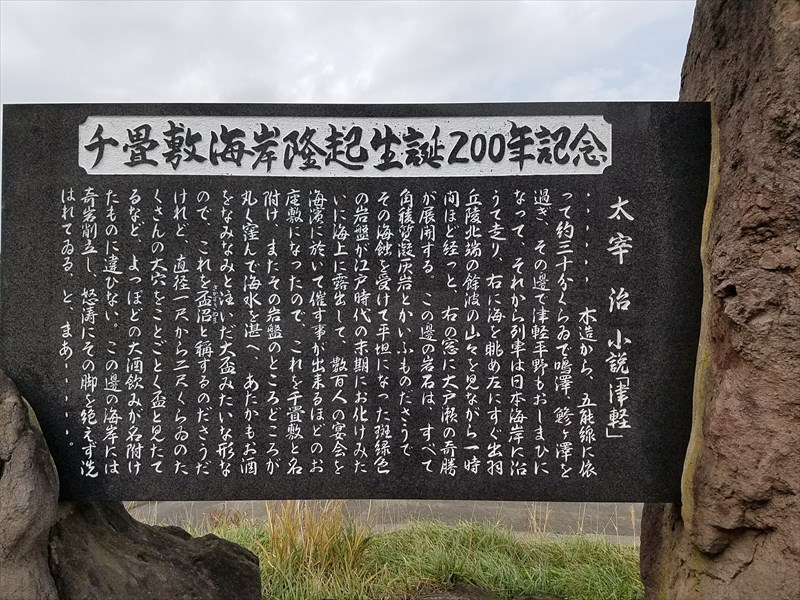 千畳敷海岸隆起生誕200年記念
太宰 治 小説「津軽」
・・・・・・木造から、五能線に依
って約三十分くらゐで鳴澤、鰺ヶ澤を
過ぎ、その邊で津軽平野もおしまひに
なって、それから列車は日本海岸に沿
うて走り、右に海を眺め左にすぐ出羽
丘陵北端の餘波の山々を見ながら一時
間ほど経つと、右の窓に大戸瀬の奇勝
が展開する。この邊の岩石は、すべて
角稜質凝灰岩とかいふものださうで
その海蝕を受けて平坦になった斑緑色
の岩盤が江戸時代の末期にお化けみた
いに海上に露出して、数百人の宴会を
海濱に於いて催す事が出来るほどのお
座敷になったので、これを千畳敷と名
附け、またその岩盤のところどころが
丸く窪んで海水を湛へ、あたかもお酒
をなみなみと注いだ大盃みたいな形な
ので、これを盃沼と稱するのださうだ
けれど、直径一尺から二尺くらゐのた
くさんの大穴をことごとく盃と見たて
るなど、よっぽどの大酒飲みが名附け
たものに違ひない。この邊の海岸には
奇岩削立し、怒涛にその脚を絶えず洗
はれてゐる、と、まあ・・・・・。